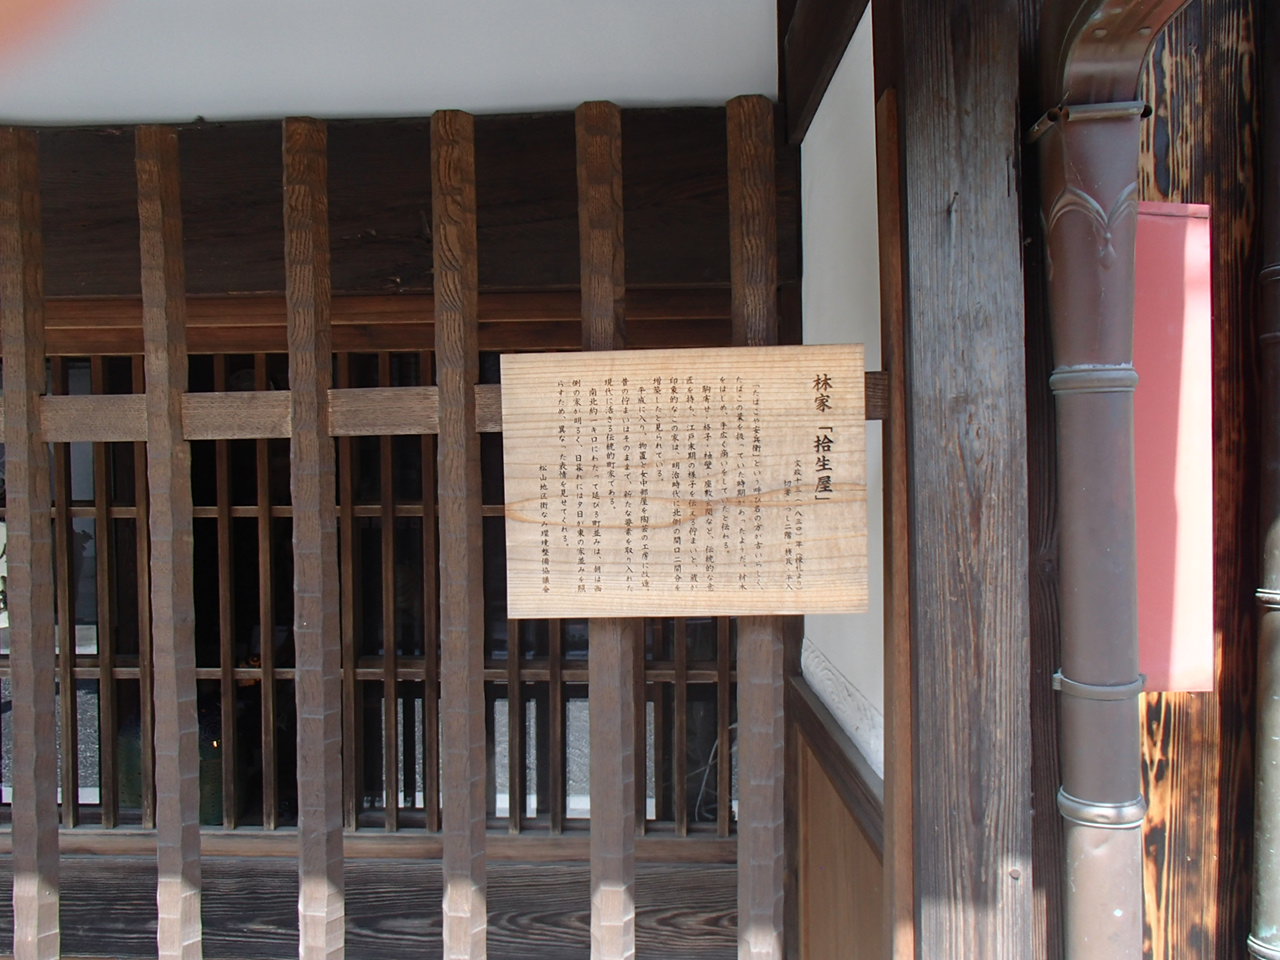 林家「拾生屋」
文政十三(一八三〇)年(棟札より)
切妻・つし二階・桟瓦・平入
「たばこや安兵衛」という呼び名の方が古いらしく、
たばこの葉を扱っていた時期があったようだ。材木
をはじめ、手広く商いをしていたと伝わる。
駒寄せ・格子・袖壁・座敷・玄関など、伝統的な意
匠を持ち、江戸末期の様子を伝える佇まいと、蔵が
印象的なこの家は、明治時代に北側の間口二間分を
増築したと見られている。
平成に入り、物置と女中部屋を陶芸の工房に改造。
昔の佇まいはそのままで、新たな要素を取り入れた
現代に活きる伝統的町家である。
南北約一キロにわたって延びる町並みは、朝は西
側の家が明るく、日暮れには夕日が東の家並みを照
らすため、異なった表情を見せてくれる。
松山地区街なみ環境整備協議会